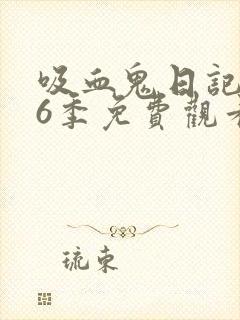 吸血鬼日記
6季免費觀
琉束